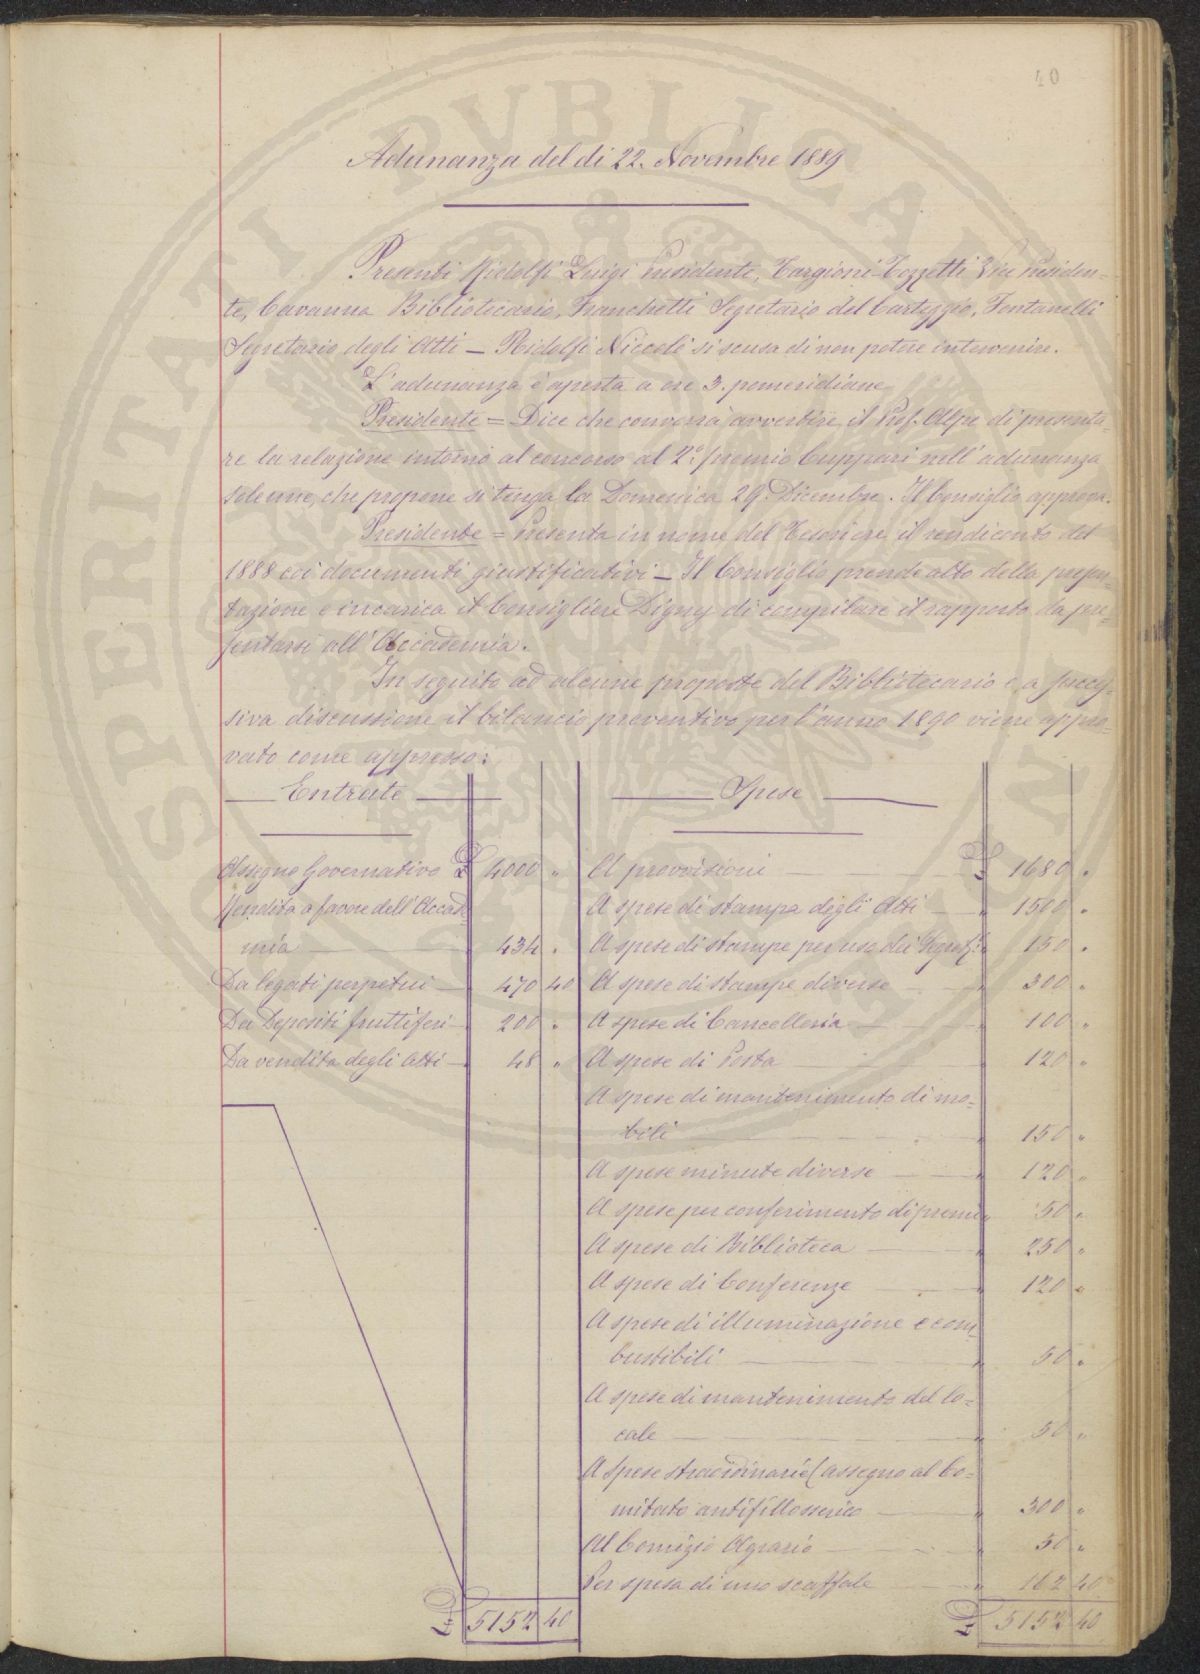 40
Adunanza del di 22. Novembre 1889
Presenti Ridolfi Luigi Presidente, Targioni-Tozzetti Vice Presiden-
te, Cavanna Bibliotecario, Franchetti Segretario del Carteggio, Fontanelli
Segretario degli Atti — Ridolfi Niccolò si scusa di non potere intervenire.
L'adunanza è aperta a ore 3. pomeridiane
Presidente = Dice che converrà avvertire il Prof. Alpe di presenta-
re la relazione intorno al concorso al 2º. premio Cuppari nell'adunanza
solenne, che propone si tenga la Domenica 29. Dicembre. Il Consiglio approva.
Presidente = Presenta in nome del Tesoriere il rendiconto del
1888 coi documenti giustificativi — Il Consiglio prende atto della presen-
tazione e incarica il Consigliere Digny di compilare il rapporto da pre-
sentarsi all'Accademia.
In seguito ad alcune proposte del Bibliotecario e a succes-
siva discussione il bilancio preventivo per l'anno 1890 viene appro-
vato come appresso:
Entrate
Assegno Governativo £ 4000 "
Rendita a favore dell'Accade
mia 434 "
Da legati perpetui 470 40
Da Depositi fruttiferi 200 "
Da vendita degli Atti 48 "
£ 5152 40
Spese
A provvisioni £ 1680 "
A spese di stampa degli Atti " 1500 "
A spese di stampe per uso di " 150 "
A spese di stampe diverse " 300 "
A spese di Cancelleria " 100 "
A spese di Posta " 120 "
A spese di mantenimento di mo-
bili " 150 "
A spese minute diverse " 120 "
A spese per conferimento di premi " 50 "
A spese di Biblioteca " 250 "
A spese di Conferenze " 120 "
A spese di illuminazione e com
bustibili " 50 "
A spese di mantenimento del lo-
cale " 50 "
A spese straordinarie (assegno al Co-
mitato antifillosserico " 300 "
Al Comizio Agrario " 50 "
Per spesa di uno scaffale " 162 40
£ 5152 40